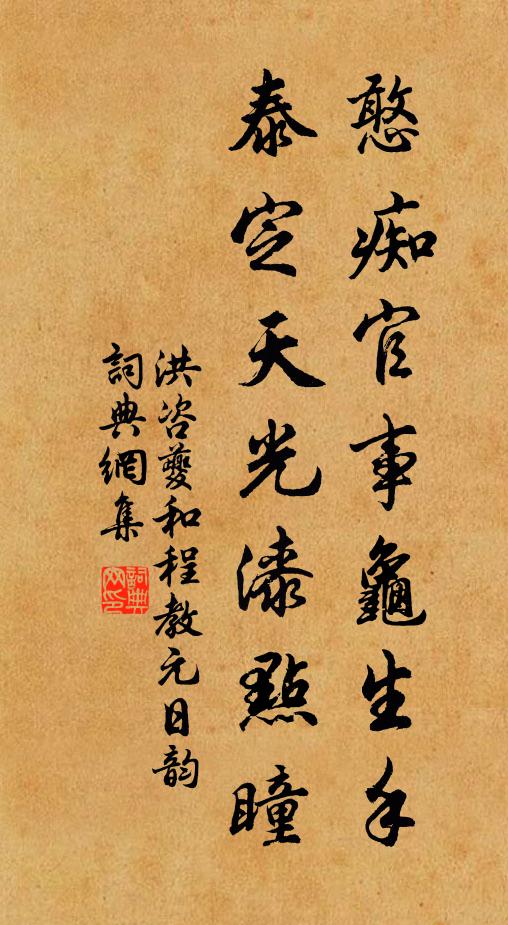 憨痴官事龜生手
泰定天光漆點瞳
洪咨夔和程教元日韵
詞典網集
詞典網印